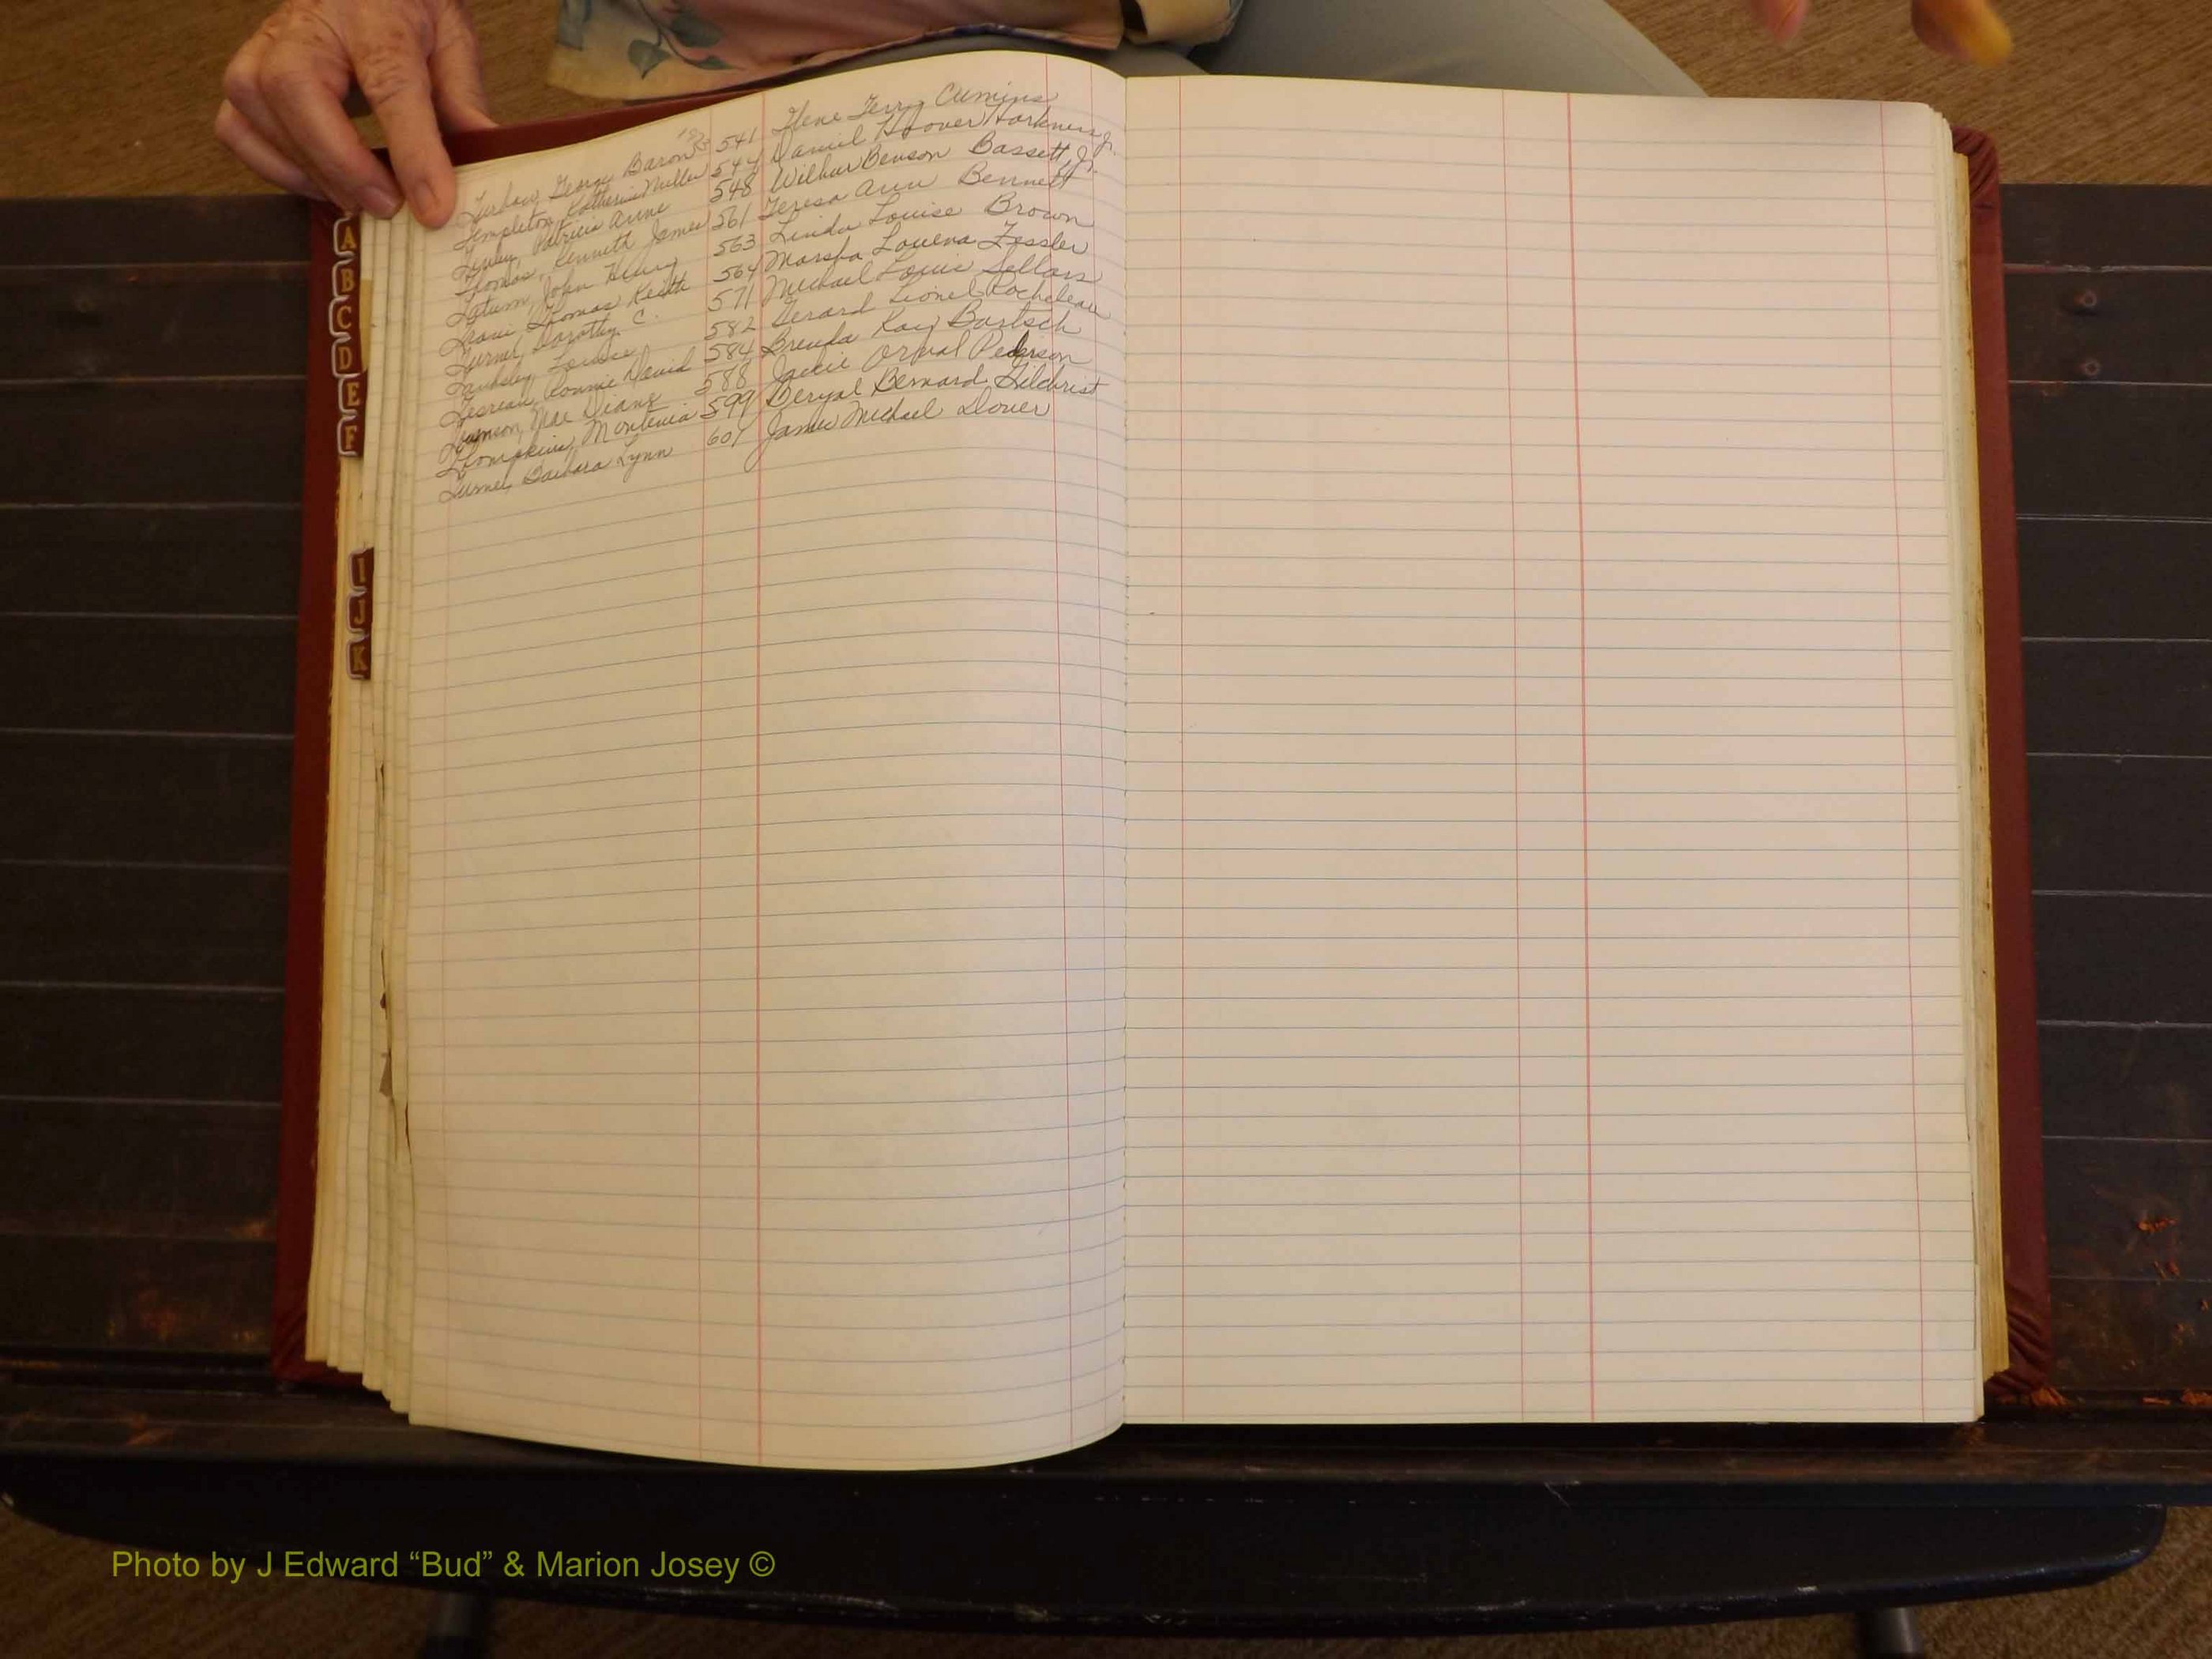 George Baron 541 Gene Terry Cumins
Templeton, Katherine Miller 544 Daniel Hoover Harkness Jr.
Patricia Anne 548 Wilbur Benson Bassett, Jr.
Thomas, Kenneth James 561 Teresa Ann Bennett
Tatum, John Henry 563 Linda Louise Brown
Thomas Keith 564 Marsha Louena Fessler
Turner, Dorothy C. 571 Michael Louis Sellars
Louise 582 Gerard Lionel Rocheleau
Ronnie David 584 Brenda Kay Bartsch
Mae Diane 588 Jackie Orval Pederson
Thompkins, 599 Deryal Bernard Gilchrist
Turner, Barbara Lynn 601 James Michael Dover
A
B
C
D
E
F
I
J
K
Photo by J Edward “Bud” & Marion Josey ©